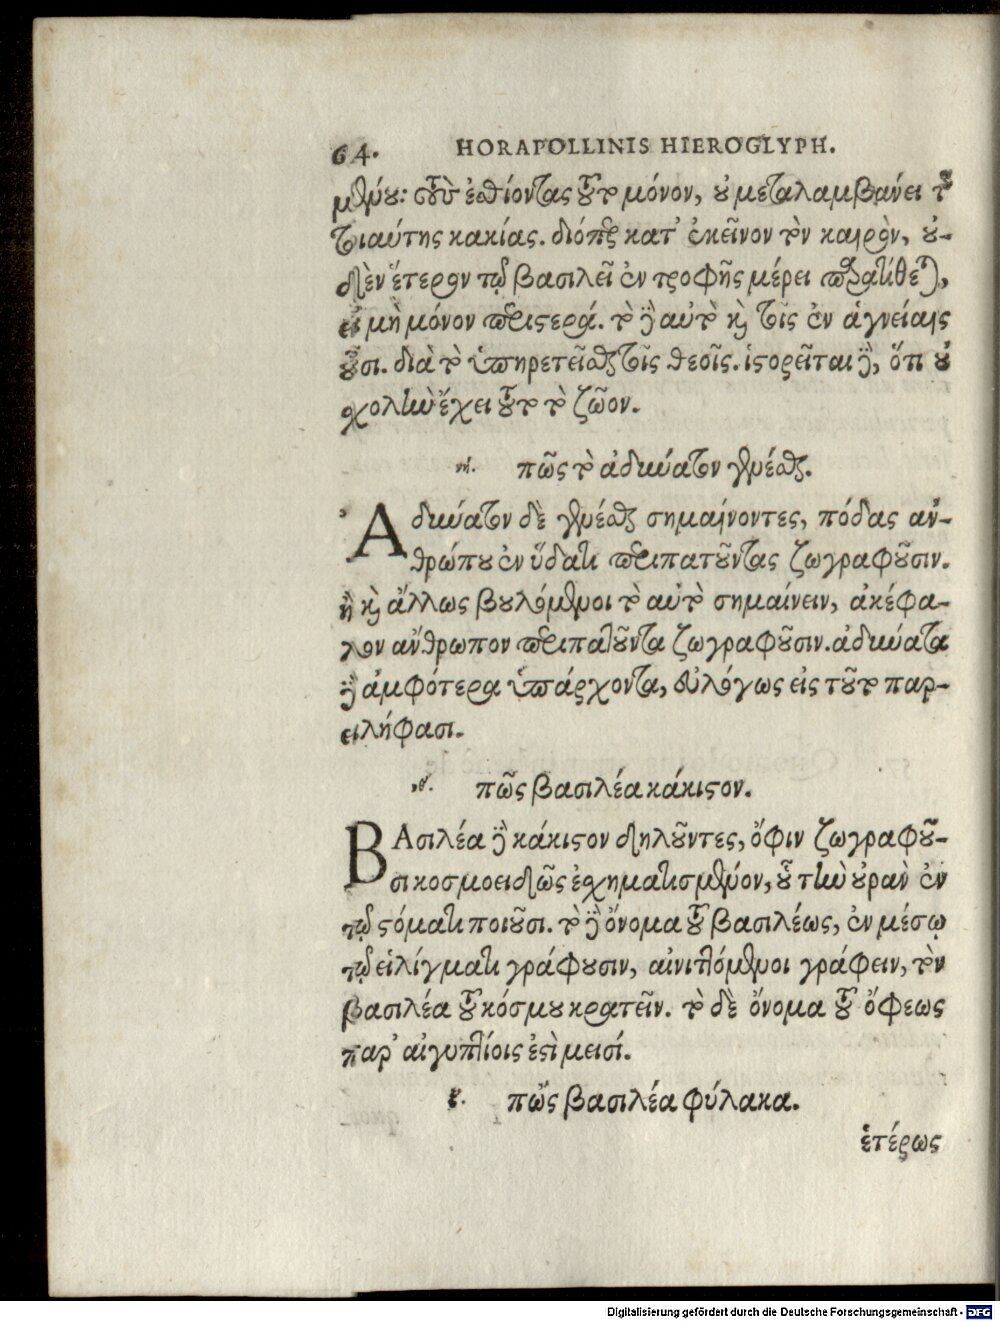 64.
HORAPOLLINIS HIEROGLYPH.
μένου: τοὺς ἐσθίοντας τοῦτο μόνον, οὐ μεταλαμβάνει τῆς
τοιαύτης κακίας. διόπερ κατ' ἐκεῖνον τὸν καιρὸν, οὐ-
δὲν ἕτερον τῷ βασιλεῖ ἐν τροφῆς μέρει παρατίθεται,
εἰ μὴ μόνον περιστερά. τὸ δὲ αὐτὸ καὶ τοῖς ἐν ἁγνείαις
οὖσι. διὰ τὸ ὑπηρετεῖσθαι τοῖς θεοῖς. ἱστορεῖται δὲ, ὅτι οὐ
χολὴν ἔχει τοῦτο τὸ ζῶον.
νη. πῶς τὸ ἀδύνατον γενέσθαι.
Ἀδύνατον δὲ γενέσθαι σημαίνοντες, πόδας ἀν-
θρώπου ἐν ὕδατι περιπατοῦντας ζωγραφοῦσιν.
ἢ καὶ ἄλλως βουλόμενοι τὸ αὐτὸ σημαίνειν, ἀκέφα-
λον ἄνθρωπον περιπατοῦντα ζωγραφοῦσιν. ἀδύνατα
δὲ ἀμφότερα ὑπάρχοντα, εὐλόγως εἰς τοῦτο παρ-
ειλήφασι.
νθ. πῶς βασιλέα κάκιστον.
ΒΑσιλέα δὲ κάκιστον δηλοῦντες, ὄφιν ζωγραφοῦ-
σι κοσμοειδῶς ἐσχηματισμένον, οὗ τὴν οὐρὰν ἐν
τῷ στόματι ποιοῦσι. τὸ δὲ ὄνομα τοῦ βασιλέως, ἐν μέσῳ
τῷ εἰλίγματι γράφουσιν, αἰνιττόμενοι γράφειν, τὸν
βασιλέα τοῦ κόσμου κρατεῖν. τὸ δὲ ὄνομα τοῦ ὄφεως
παρ' αἰγυπτίοις ἐστὶ μεισί.
ξ. πῶς βασιλέα φύλακα.
ἑτέρως
Digitalisierung gefördert durch die Deutsche Forschungsgemeinschaft - DFG